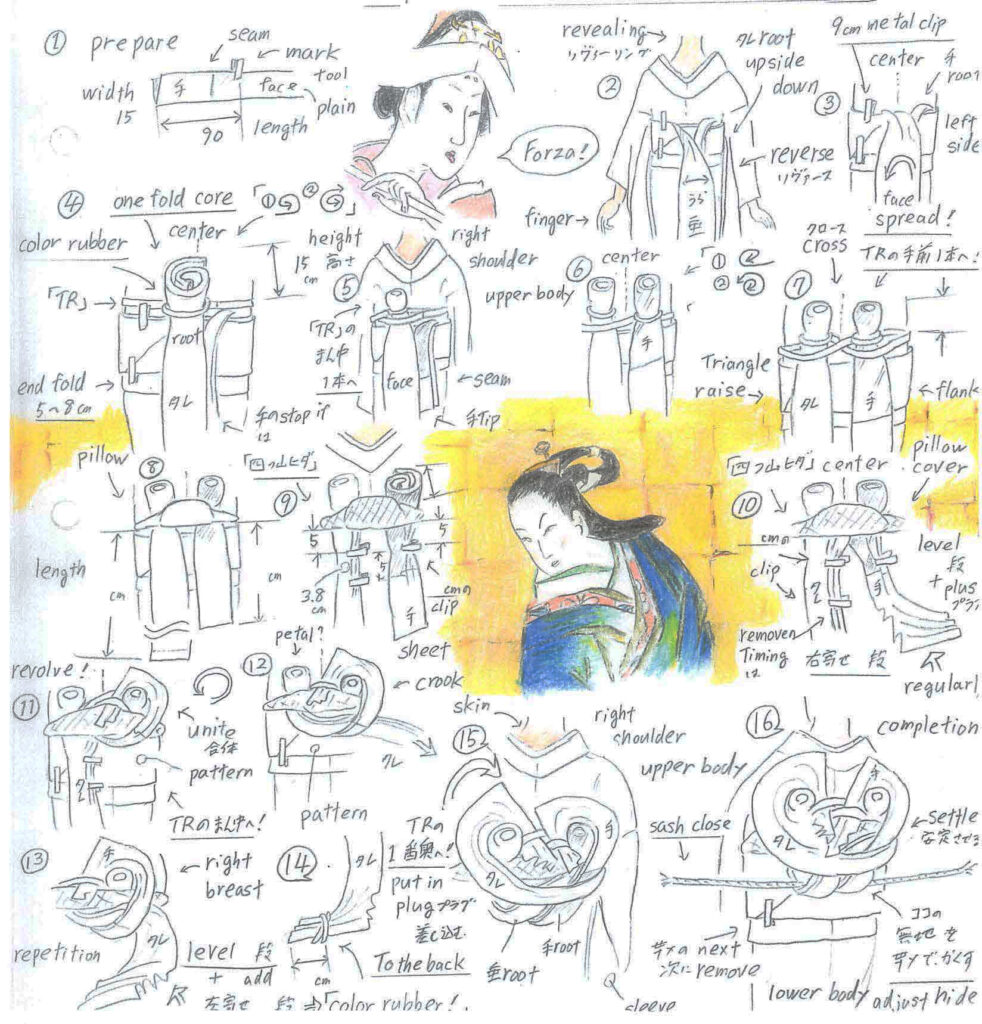 ① prepare
seam
mark
tool
手
face
plain
width
15
90
length
Forza!
revealing
リヴィーリング
②
タレ root
upside
down
reverse
リヴァース
うら
垂
finger
9cm metal clip
center
手
root
③
left
side
face
spread!
④ one fold core
「① ② 」
color rubber
center
height
15 高さ
cm
「TR」
root
タレ
end fold
5〜8cm
手の stop it
は
right
shoulder
⑤
「TR」の
まん中
1本へ
face
seam
手Tip
⑥ center
「①
②
upper body
手
クロース
cross
TRの手前1本へ!
⑦
Triangle
raise
タレ
手
flank
pillow
⑧
length
cm
cm
「四つ山ヒダ」
⑨
5
5
5
3.8
cm
cmの
clip
手
sheet
「四つ山ヒダ」 center
pillow
cover
⑩
cmの
clip
level
段
+
plus
プラス
手
remove
Timing
は
右寄せ 段
regular
revolve!
⑪
unite
合体
pattern
TRのまん中へ!
petal?
⑫
crook
タレ
pattern
⑬
手
right
breast
タレ
repetition
level 段
+ add
左寄せ 段
⑭
タレ
cm
To the back
「color rubber!」
skin
right
shoulder
⑮
TRの
1番奥へ!
put in
plug プラグ
差し込む
手
タレ
手root
垂root
sleeve
⑯ completion
upper body
手
タレ
sash close
settle
安定させる
next
次に remove
ココの
無地を
でかくす
lower body adjust hide